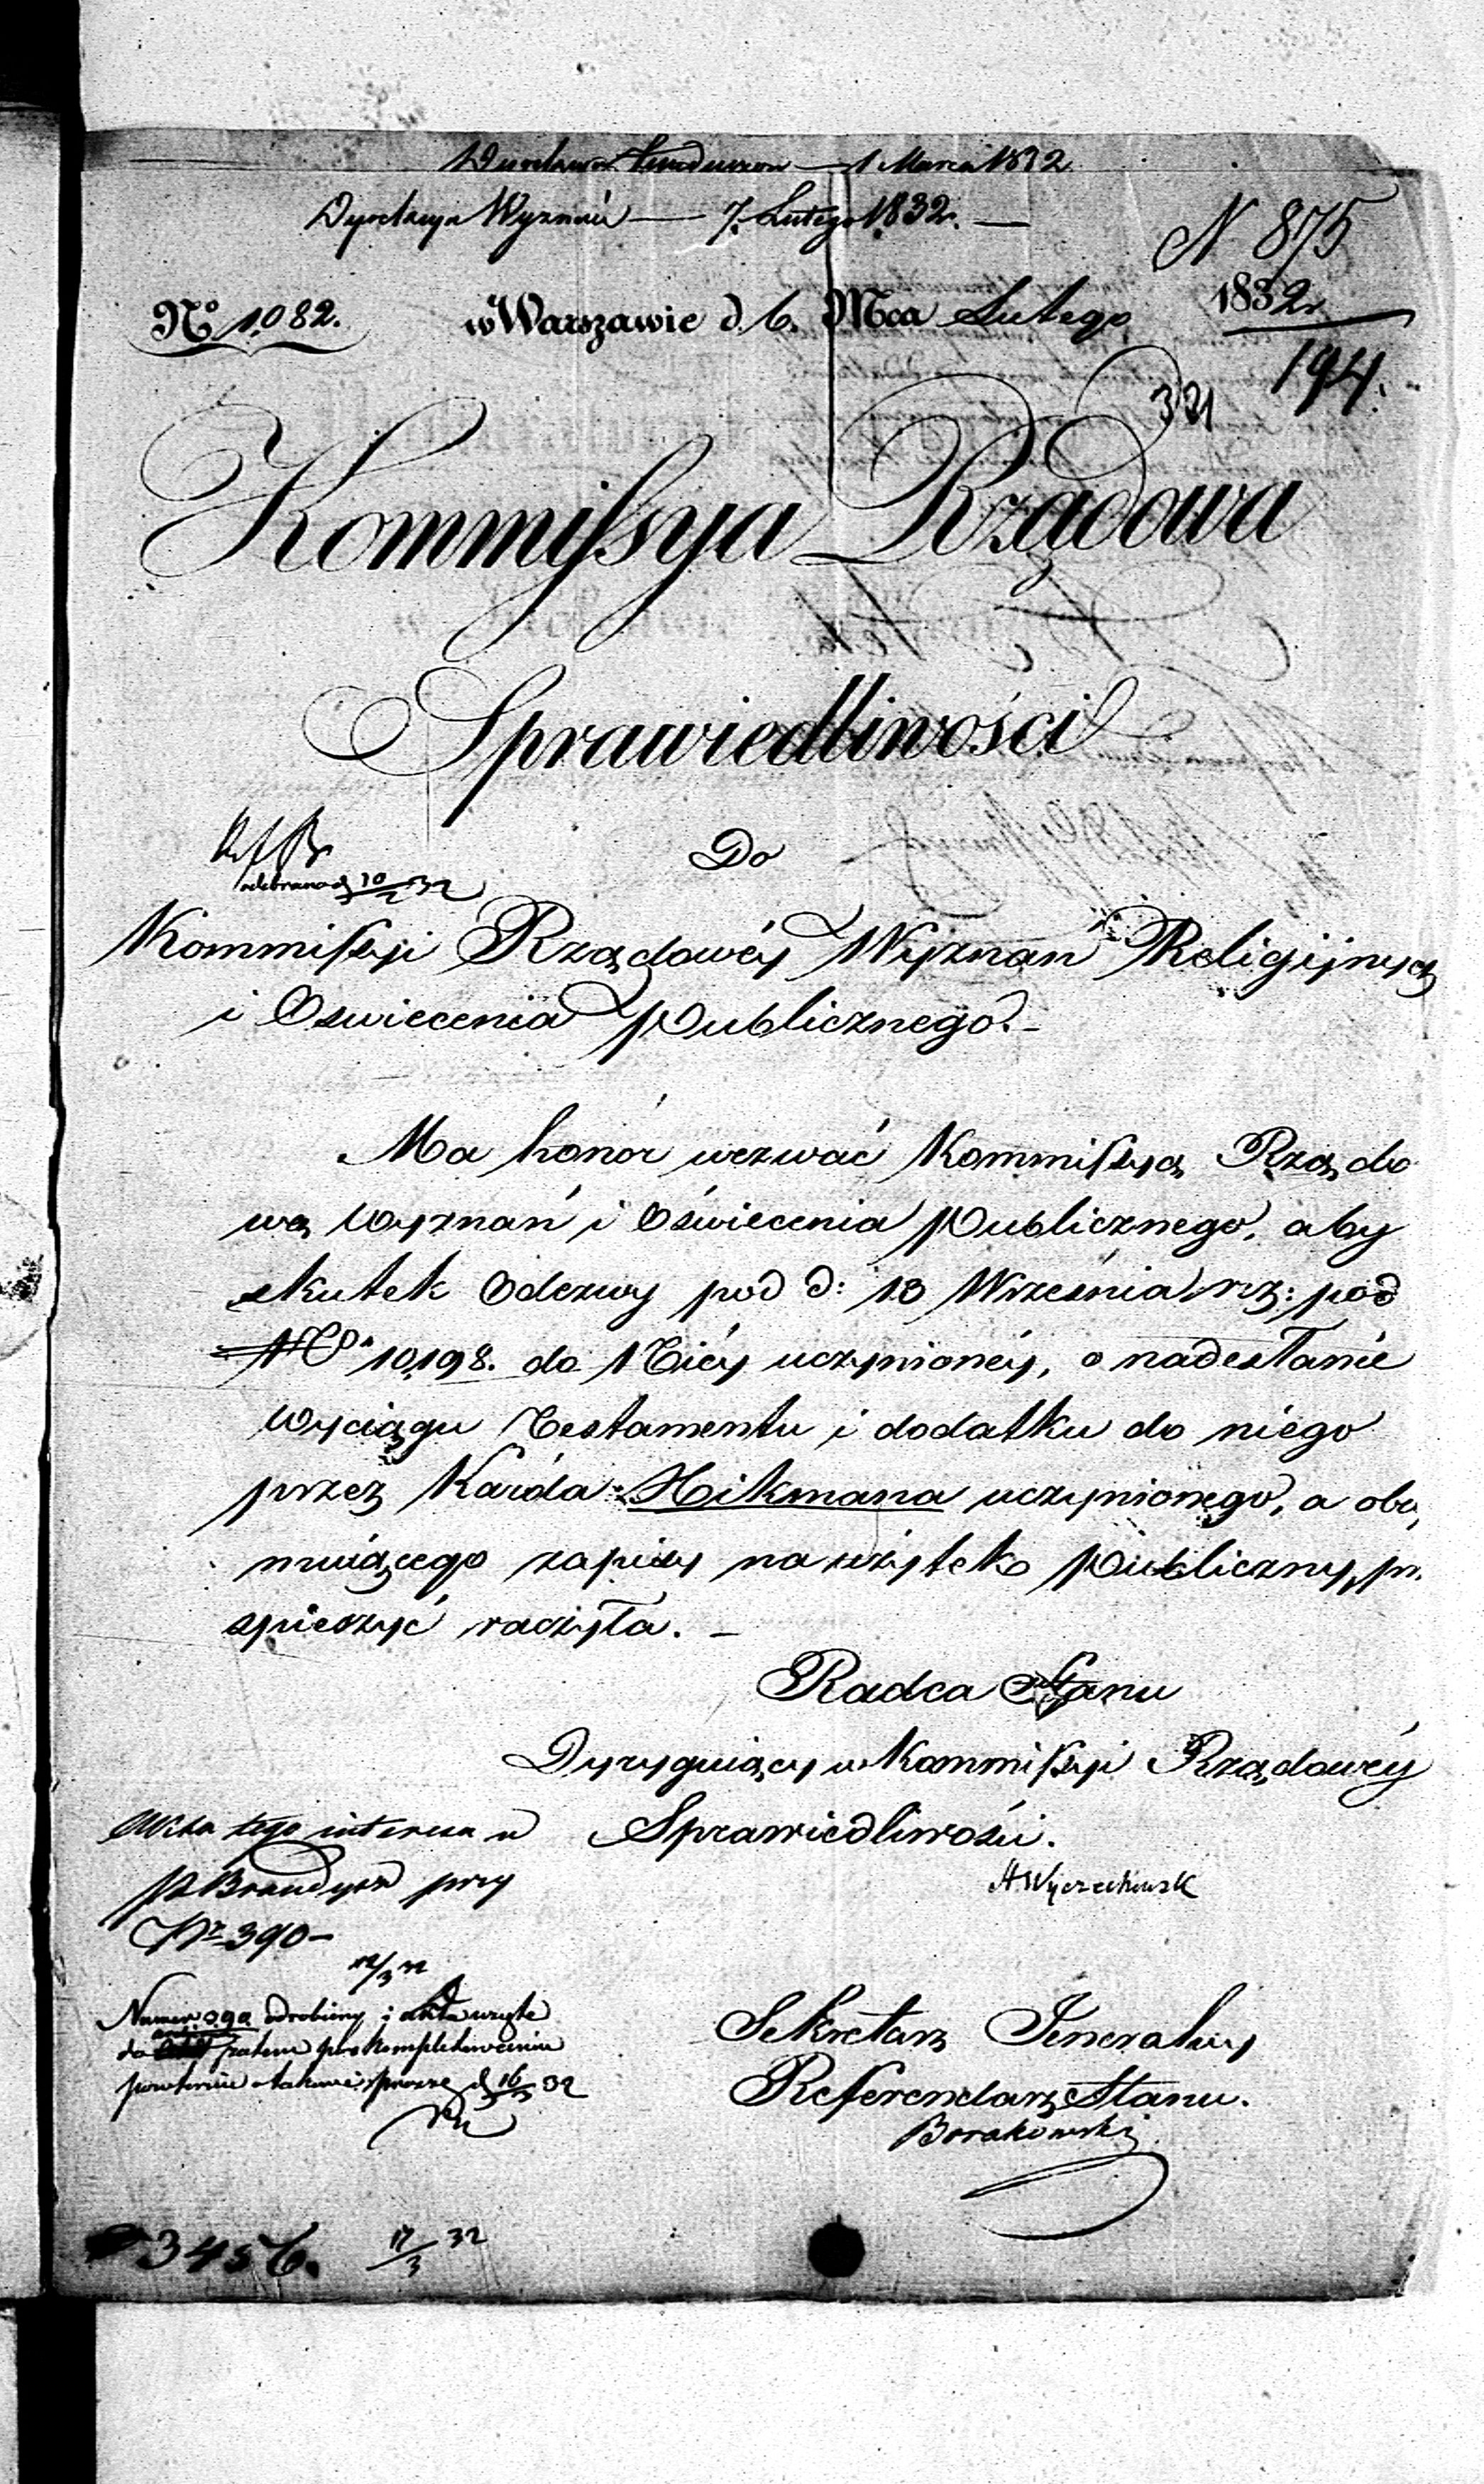 1 Marca 1832
Dyrekcya Wyznań — 7. Lutego 1832. —
N 875
No 1,082. w Warszawie d. 6. Mca Lutego 1832r.
194.
321
Kommissya Rządowa
Sprawiedliwości
Do
odebrano d. 10/2 32
Kommissyi Rządowéy Wyznań Religijnych
i Oswiecenia Publicznego. –
Ma honór wezwać Kommissyą Rządo
wą Wyznań i Oświecenia Publicznego, aby
skutek Odezwy pod d: 13 Września r. z: pod
No 10,198. do Niéy uczynionéy, o nadesłanie
wyciągu Testamentu i dodatku do niego
przez Hikmana uczynionego, a
zapisy na użytek Publiczny, przy
spieszyć raczyła. –
Radca Stanu
Dyryguiący w Kommissyi Rządowéy
Sprawiedliwości.
A Wyczechowsk
Akta tego interesu u
P. Brandysa przy
Nr 390 –
12/3 32
Numer 390 odrobiony i akta wzięte
do zatem po skompletowaniu
powtórnie o takowe proszę d. 16/3 32
Sekretarz Jeneralny
Referendarz Stanu.
Borakowski
3456. 17/3 32